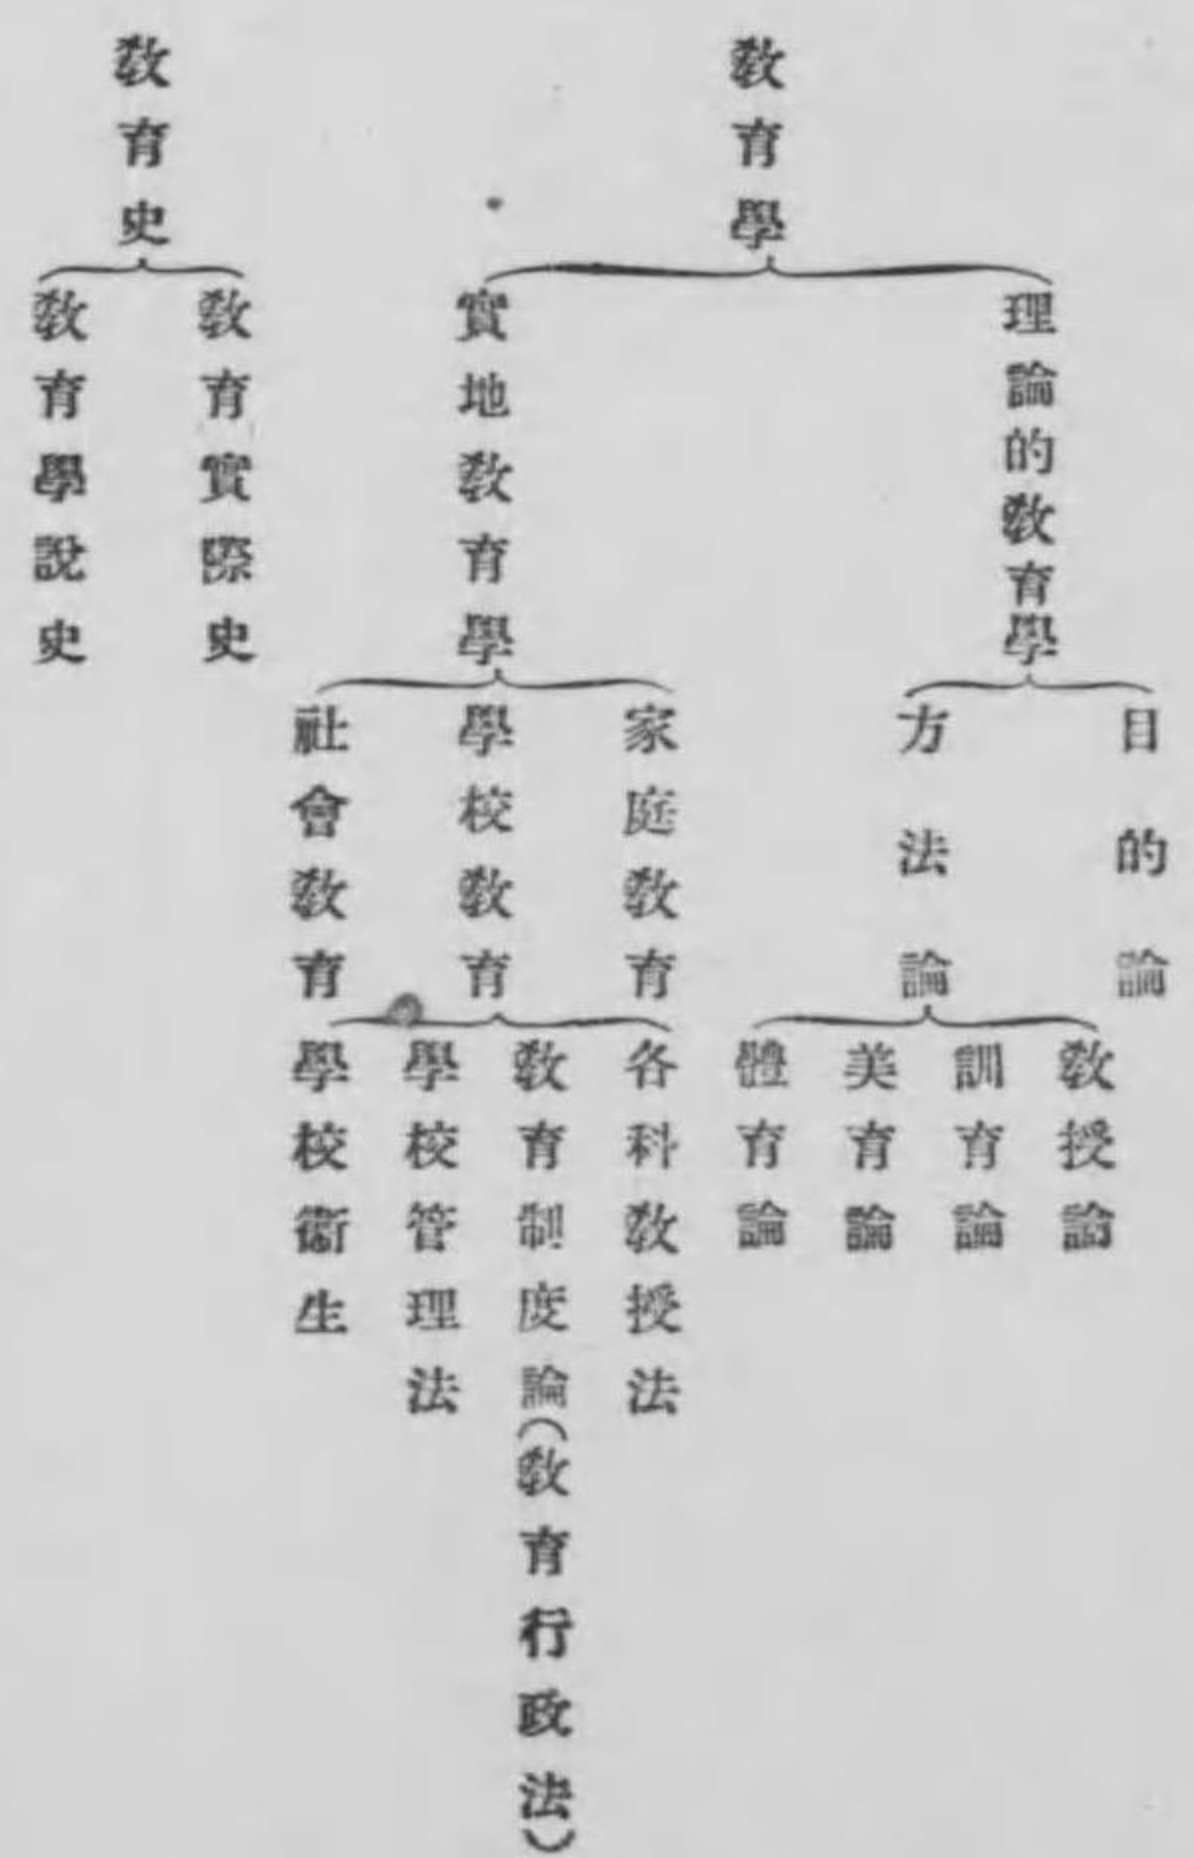 教育學
理論的教育學
目的論
方法論
教授論
訓育論
美育論
體育論
實地教育學
家庭教育
學校教育
各科教授法
教育制度論(教育行政法)
學校管理法
學校衞生
社會教育
教育史
教育實際史
教育學說史